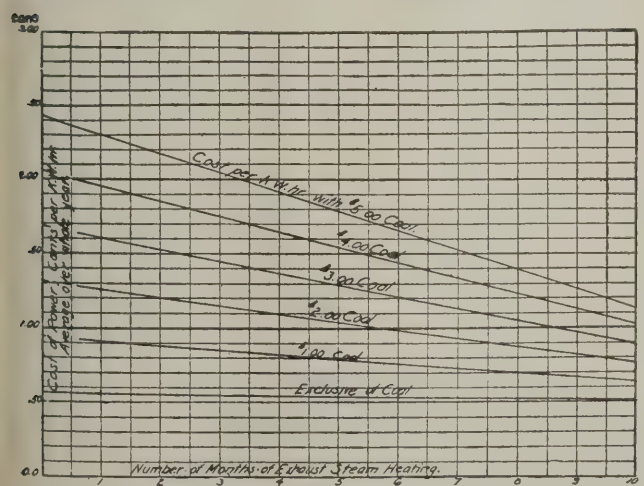 Cents
3.00
.50
2.00
.50
1.00
.50
0.0
Cost of Power, Cents per K.W.hr.
Average over whole year.
Cost per K.W.hr. with $5.00 Coal.
$4.00 Coal
$3.00 Coal
$2.00 Coal
$1.00 Coal
Exclusive of Coal
Number of Months of Exhaust Steam Heating.
1 2 3 4 5 6 7 8 9 10